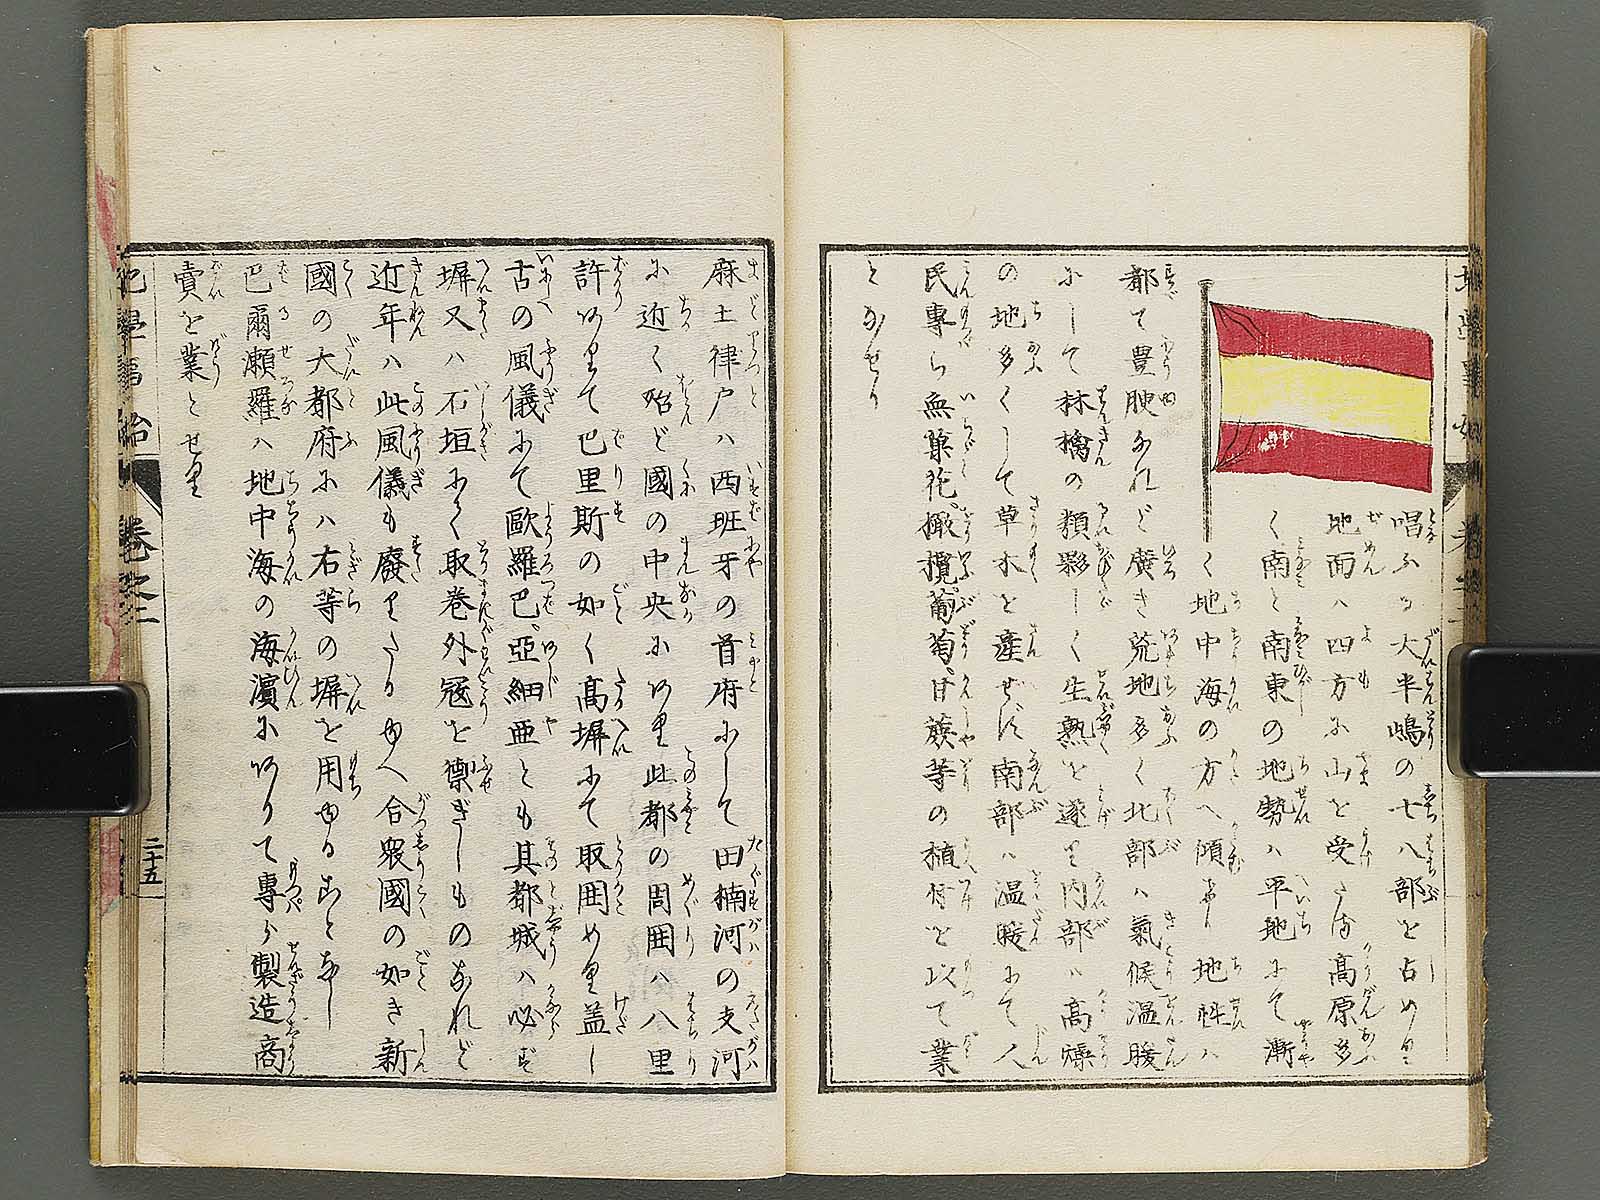 唱ふる大半嶋の七八部を占め里
地面ハ四方に山を受た流高原多
く南と南東の地勢ハ平地尓て漸
く地中海の方へ傾けり地性ハ
都て豊腴なれど廣き荒地多く北部ハ氣候温暖
尓して林檎の類夥しく生熟を遂け内部ハ高燥
の地多くして草木を産ぜず南部ハ温暖尓て人
民専ら無菓花橄欖葡萄甘蔗等の植付を以て業
となせり
麻土律戸ハ西班牙の首府尓して田楠河の支河
尓近く殆ど國の中央尓阿里此都の周囲ハ八里
許阿里て巴里斯の如く高塀尓て取囲め里蓋し
古の風儀尓て歐羅巴亞細亜とも其都城ハ必ず
塀又ハ石垣尓て取巻外冦を禦ぎしものなれど
近年ハ此風儀も廢里たる由へ合衆國の如き新
國の大都府尓ハ右等の塀を用ゆることなし
巴爾瀬羅ハ地中海の海濵尓阿りて專ら製造商
賣を業とせ里
地學事始 巻之二
二十五